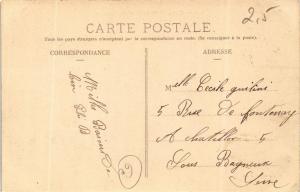 2,5
CARTE POSTALE
Tous les pays étrangers n'acceptent pas la correspondance au recto. (Se renseigner à la poste).
CORRESPONDANCE
ADRESSE
Mille Baisers de
Melle Cécile
5 Rue De Fontenay
A Chatillon
Sous Bagneux
Seine